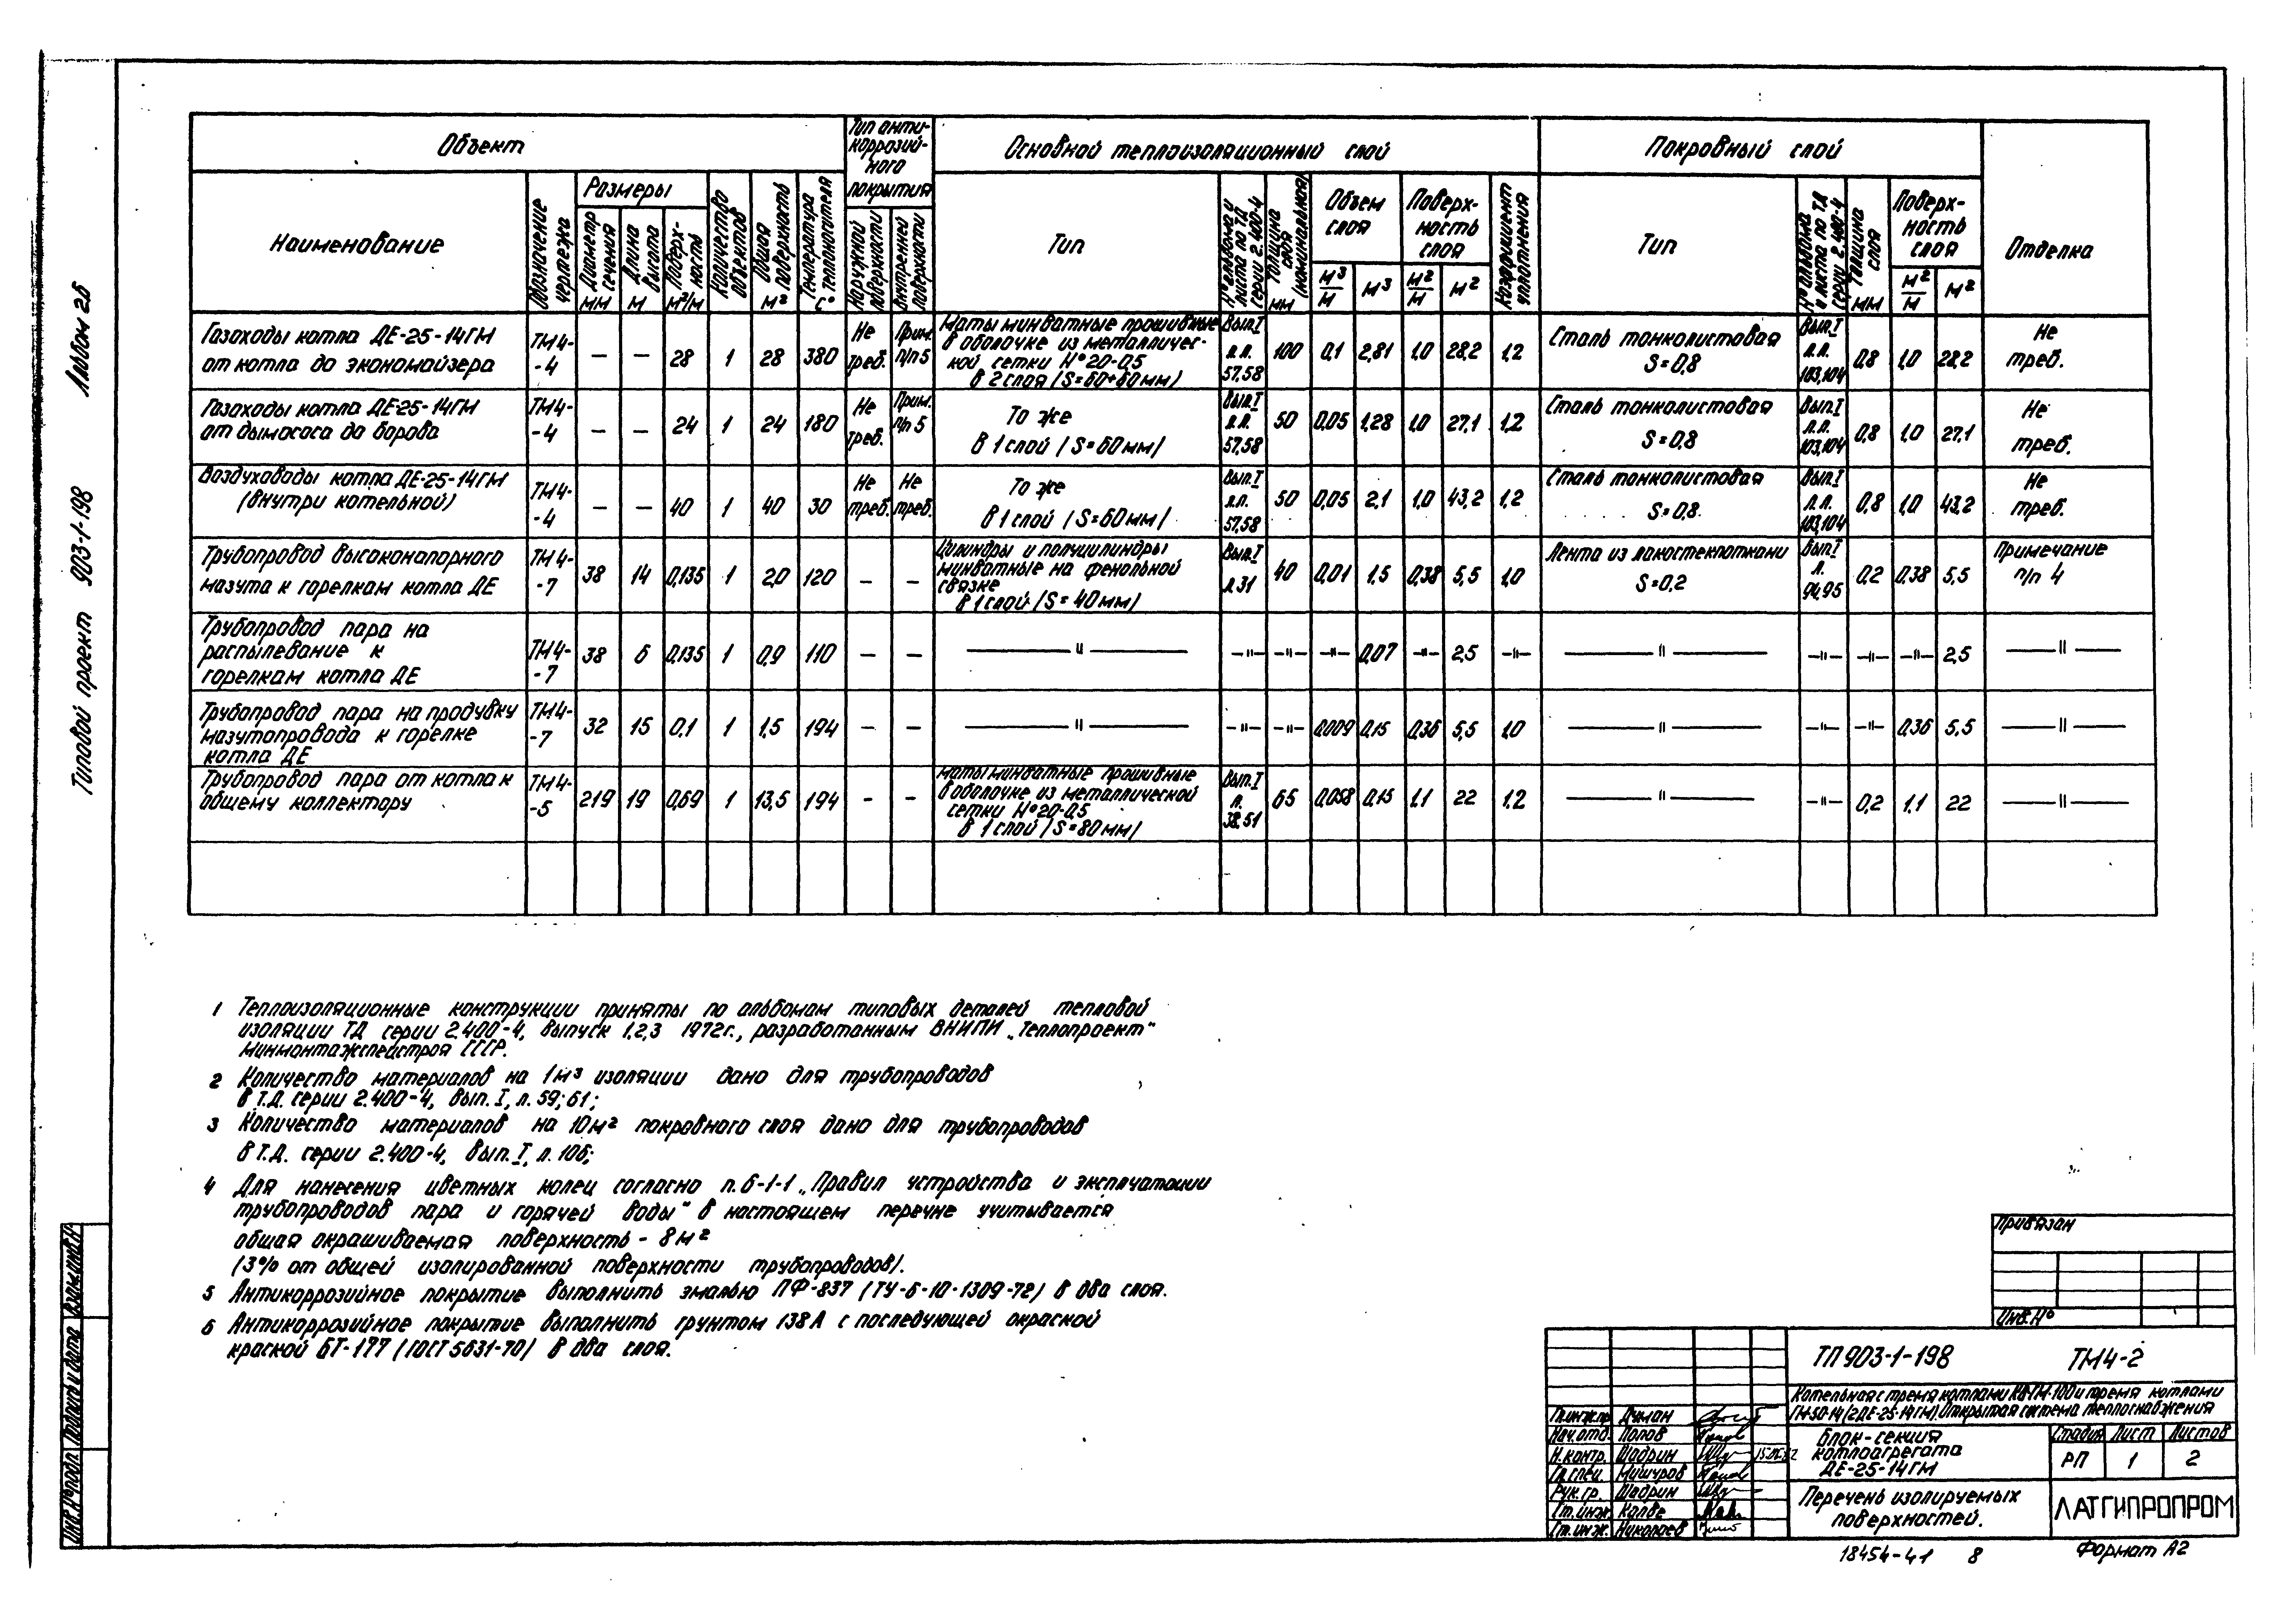 Альбом 2б
Типовой проект 903-1-198
Объект
Тип анти-
коррозий-
ного
покрытия
Основной теплоизоляционный слой
Покровный слой
Отделка
Наименование
Обозначение чертежа
Размеры
Диаметр сечения мм
Длина высота м
Поверх-ность м²/м
Количество объектов
Общая поверхность м²
Температура теплоносителя С°
Наружной поверхности
Внутренней поверхности
Тип
N° альбома и листа по ТД серии 2.400-4
Толщина слоя (номинальная) мм
Объем слоя
м³/м
м³
Поверх-
ность
слоя
м²/м
м²
Коэффициент уплотнения
Тип
N° альбома и листа по ТД серии 2.400-4
Толщина слоя мм
Поверх-
ность
слоя
м²/м
м²
Газоходы котла ДЕ-25-14ГМ
от котла до экономайзера
ТМ4-
-4
— — 28 1 28 380
Не
треб.
Прим.
п/п 5
Маты минватные прошивные
в оболочке из металличес-
кой сетки N°20-0,5
в 2 слоя (S=60+60мм)
Вып.I
л.л.
57,58
100 0,1 2,81 1,0 28,2 1,2
Сталь тонколистовая
S=0,8
Вып.I
л.л.
103,104
0,8 1,0 28,2
Не
треб.
Газоходы котла ДЕ-25-14ГМ
от дымососа до борова
ТМ4-
-4
— — 24 1 24 180
Не
треб.
Прим.
п/п 5
То же
в 1 слой (S=60мм)
Вып.I
л.л.
57,58
50 0,05 1,28 1,0 27,1 1,2
Сталь тонколистовая
S=0,8
Вып.I
л.л.
103,104
0,8 1,0 27,1
Не
треб.
Воздуховоды котла ДЕ-25-14ГМ
(внутри котельной)
ТМ4-
-4
— — 40 1 40 30
Не
треб.
Не
треб.
То же
в 1 слой (S=60мм)
Вып.I
л.л.
57,58
50 0,05 2,1 1,0 43,2 1,2
Сталь тонколистовая
S=0,8
Вып.I
л.л.
103,104
0,8 1,0 43,2
Не
треб.
Трубопровод высоконапорного
мазута к горелкам котла ДЕ
ТМ4-
-7
38 14 0,135 1 2,0 120 — —
Цилиндры и полуцилиндры
минватные на фенольной
связке
в 1 слой (S=40мм)
Вып.I
л.31
40 0,01 1,5 0,38 5,5 1,0
Лента из лакостеклоткани
S=0,2
Вып.I
л.
94,95
0,2 0,38 5,5
Примечание
п/п 4
Трубопровод пара на
распыливание к
горелкам котла ДЕ
ТМ4-
-7
38 6 0,135 1 0,9 110 — —
—"— —"— —"— —"— 0,07 —"— 2,5 —"— —"— —"— —"— —"— 2,5 —"—
Трубопровод пара на продувку
мазутопровода к горелке
котла ДЕ
ТМ4-
-7
32 15 0,1 1 1,5 194 — —
—"— —"— —"— 0,009 0,15 0,36 5,5 1,0 —"— —"— —"— 0,36 5,5 —"—
Трубопровод пара от котла к
общему коллектору
ТМ4-
-5
219 19 0,69 1 13,5 194 — —
Маты минватные прошивные
в оболочке из металлической
сетки N°20-0,5
в 1 слой (S=80мм)
Вып.I
л.
38,51
65 0,058 0,15 1,1 22 1,2 —"— —"— 0,2 1,1 22 —"—
1 Теплоизоляционные конструкции приняты по альбомам типовых деталей тепловой
изоляции ТД серии 2.400-4, выпуск 1,2,3 1972г., разработанным ВНИПИ „Теплопроект"
Минмонтажспецстроя СССР.
2 Количество материалов на 1м³ изоляции дано для трубопроводов
в Т.Д. серии 2.400-4, вып. I, л. 59; 61;
3 Количество материалов на 10м² покровного слоя дано для трубопроводов
в Т.Д. серии 2.400-4, вып. I, л. 106;
4 Для нанесения цветных колец согласно п. 6-1-1 „Правил устройства и эксплуатации
трубопроводов пара и горячей воды" в настоящем перечне учитывается
общая окрашиваемая поверхность - 8м²
(3% от общей изолированной поверхности трубопроводов).
5 Антикоррозийное покрытие выполнить эмалью ПФ-837 (ТУ-6-10-1309-72) в два слоя.
6 Антикоррозийное покрытие выполнить грунтом 138А с последующей окраской
краской БТ-177 (ГОСТ 5631-70) в два слоя.
Привязан
Инв.N°
ТП 903-1-198 ТМ4-2
Котельная с тремя котлами КВ-ГМ-100 и тремя котлами
ГМ-50-14 (2ДЕ-25-14ГМ). Открытая система теплоснабжения
Гл.инж.пр. Думан
Нач.отд. Попов
Н.контр. Шадрин
Гл.спец. Мишуров
Рук.гр. Шадрин
Ст.инж. Калве
Ст.инж. Николаев
Блок-секция
котлоагрегата
ДЕ-25-14ГМ
Стадия Лист Листов
РП 1 2
Перечень изолируемых
поверхностей.
ЛАТГИПРОПРОМ
18454-41 8 Формат А2
Инв.N°подл. Подпись и дата Взам.инв.N°